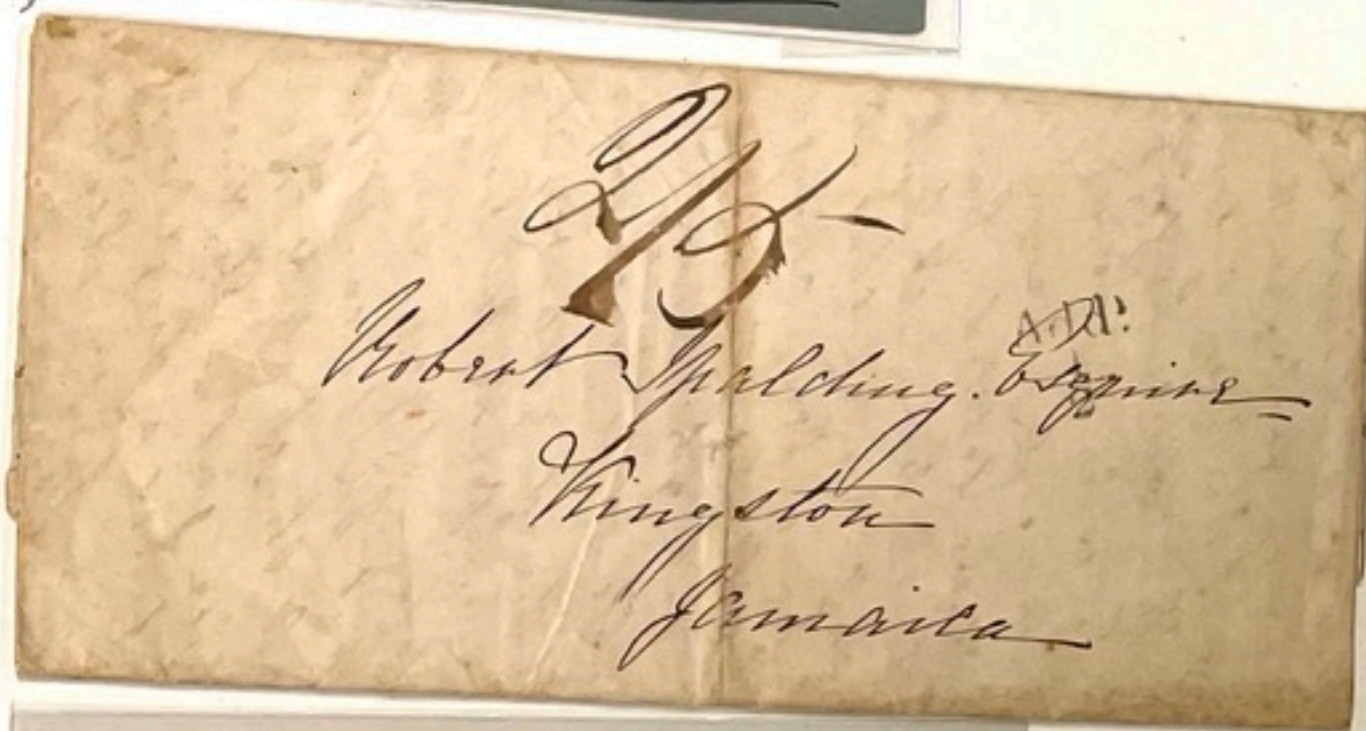 2/5-
Robert Spalding. Esquire
Kingston
Jamaica